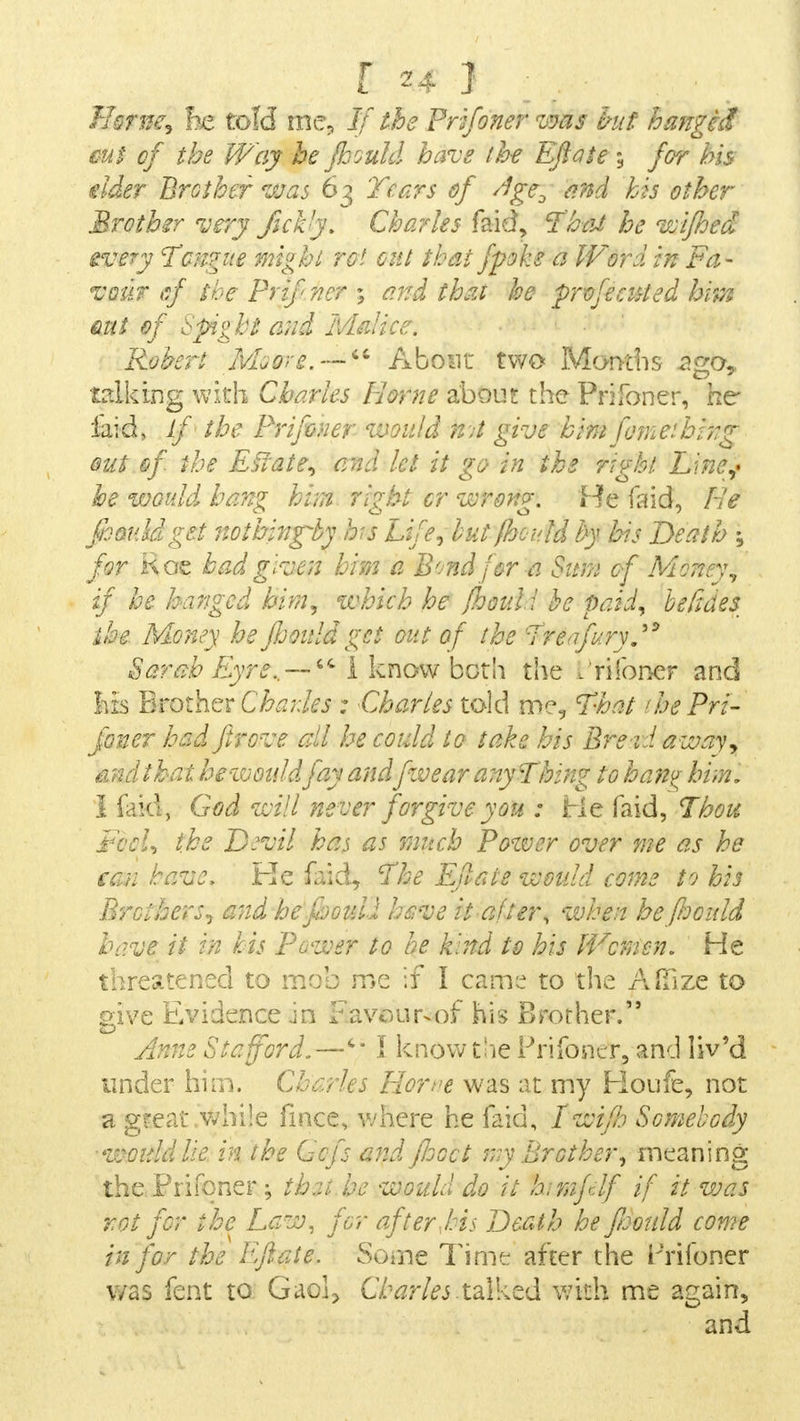 [ 24 ]
Horne, he told me, If the Prisoner was but hanged
out of the Way he should have the Estate; for his
elder Brother was 63 Years of Age, and his other
Brother very sickly. Charles said, That he wished
every Tongue might rot out that spoke a Word in Fa-
vour of the Prisoner; and that he prosecuted him
out of Spight and Malice.
Robert Moore.—“ About two Months ago,
talking with Charles Horne about the Prisoner, he
said, If the Prisoner would not give him something
out of the Estate, and let it go in the right Line,
he would hang him right or wrong. He said, He
should get nothing by his Life, but should by his Death;
for Roe had given him a Bond for a Sum of Money,
if he hanged him, which he should be paid, besides
the Money he should get out of the Treasury.”
Sarah Eyre.—“ I know both the Prisoner and
his Brother Charles: Charles told me, That the Pri-
soner had strove all he could to take his Bread away,
and that he would say and swear any Thing to hang him.
I said, God will never forgive you: He said, Thou
Fool, the Devil has as much Power over me as he
can have. He said, The Estate would come to his
Brothers, and he should have it after, when he should
have it in his Power to be kind to his Women. He
threatened to mob me if I came to the Assize to
give Evidence in Favour of his Brother.”
Anne Stafford.—“ I know the Prisoner, and liv’d
under him. Charles Horne was at my House, not
a great while since, where he said, I wish Somebody
would lie in the Gofs and shoot my Brother, meaning
the Prisoner; that he would do it himself if it was
not for the Law, for after his Death he should come
in for the Estate. Some Time after the Prisoner
was sent to Gaol, Charles talked with me again,
and